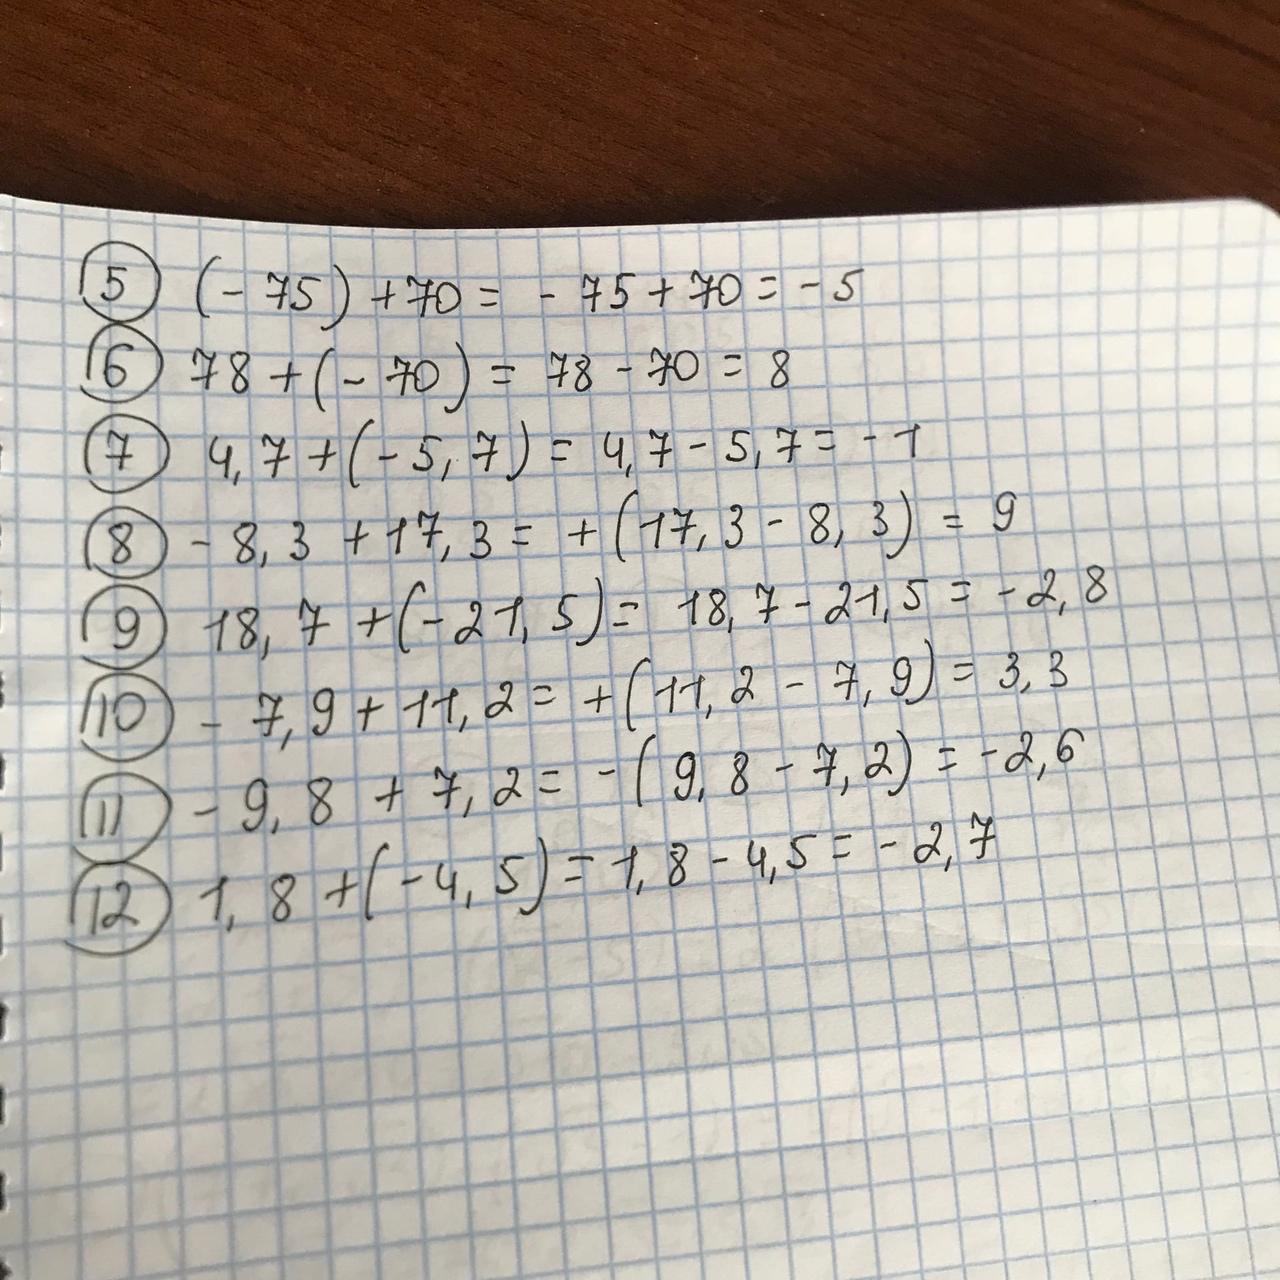 5 (-75)+70= -75+70=-5
6 78+(-70)= 78-70=8
7 4,7+(-5,7)= 4,7-5,7=-1
8 -8,3+17,3= +(17,3-8,3)=9
9 18,7+(-21,5)= 18,7-21,5=-2,8
10 -7,9+11,2= +(11,2-7,9)=3,3
11 -9,8+7,2= -(9,8-7,2)=-2,6
12 1,8+(-4,5)=1,8-4,5=-2,7